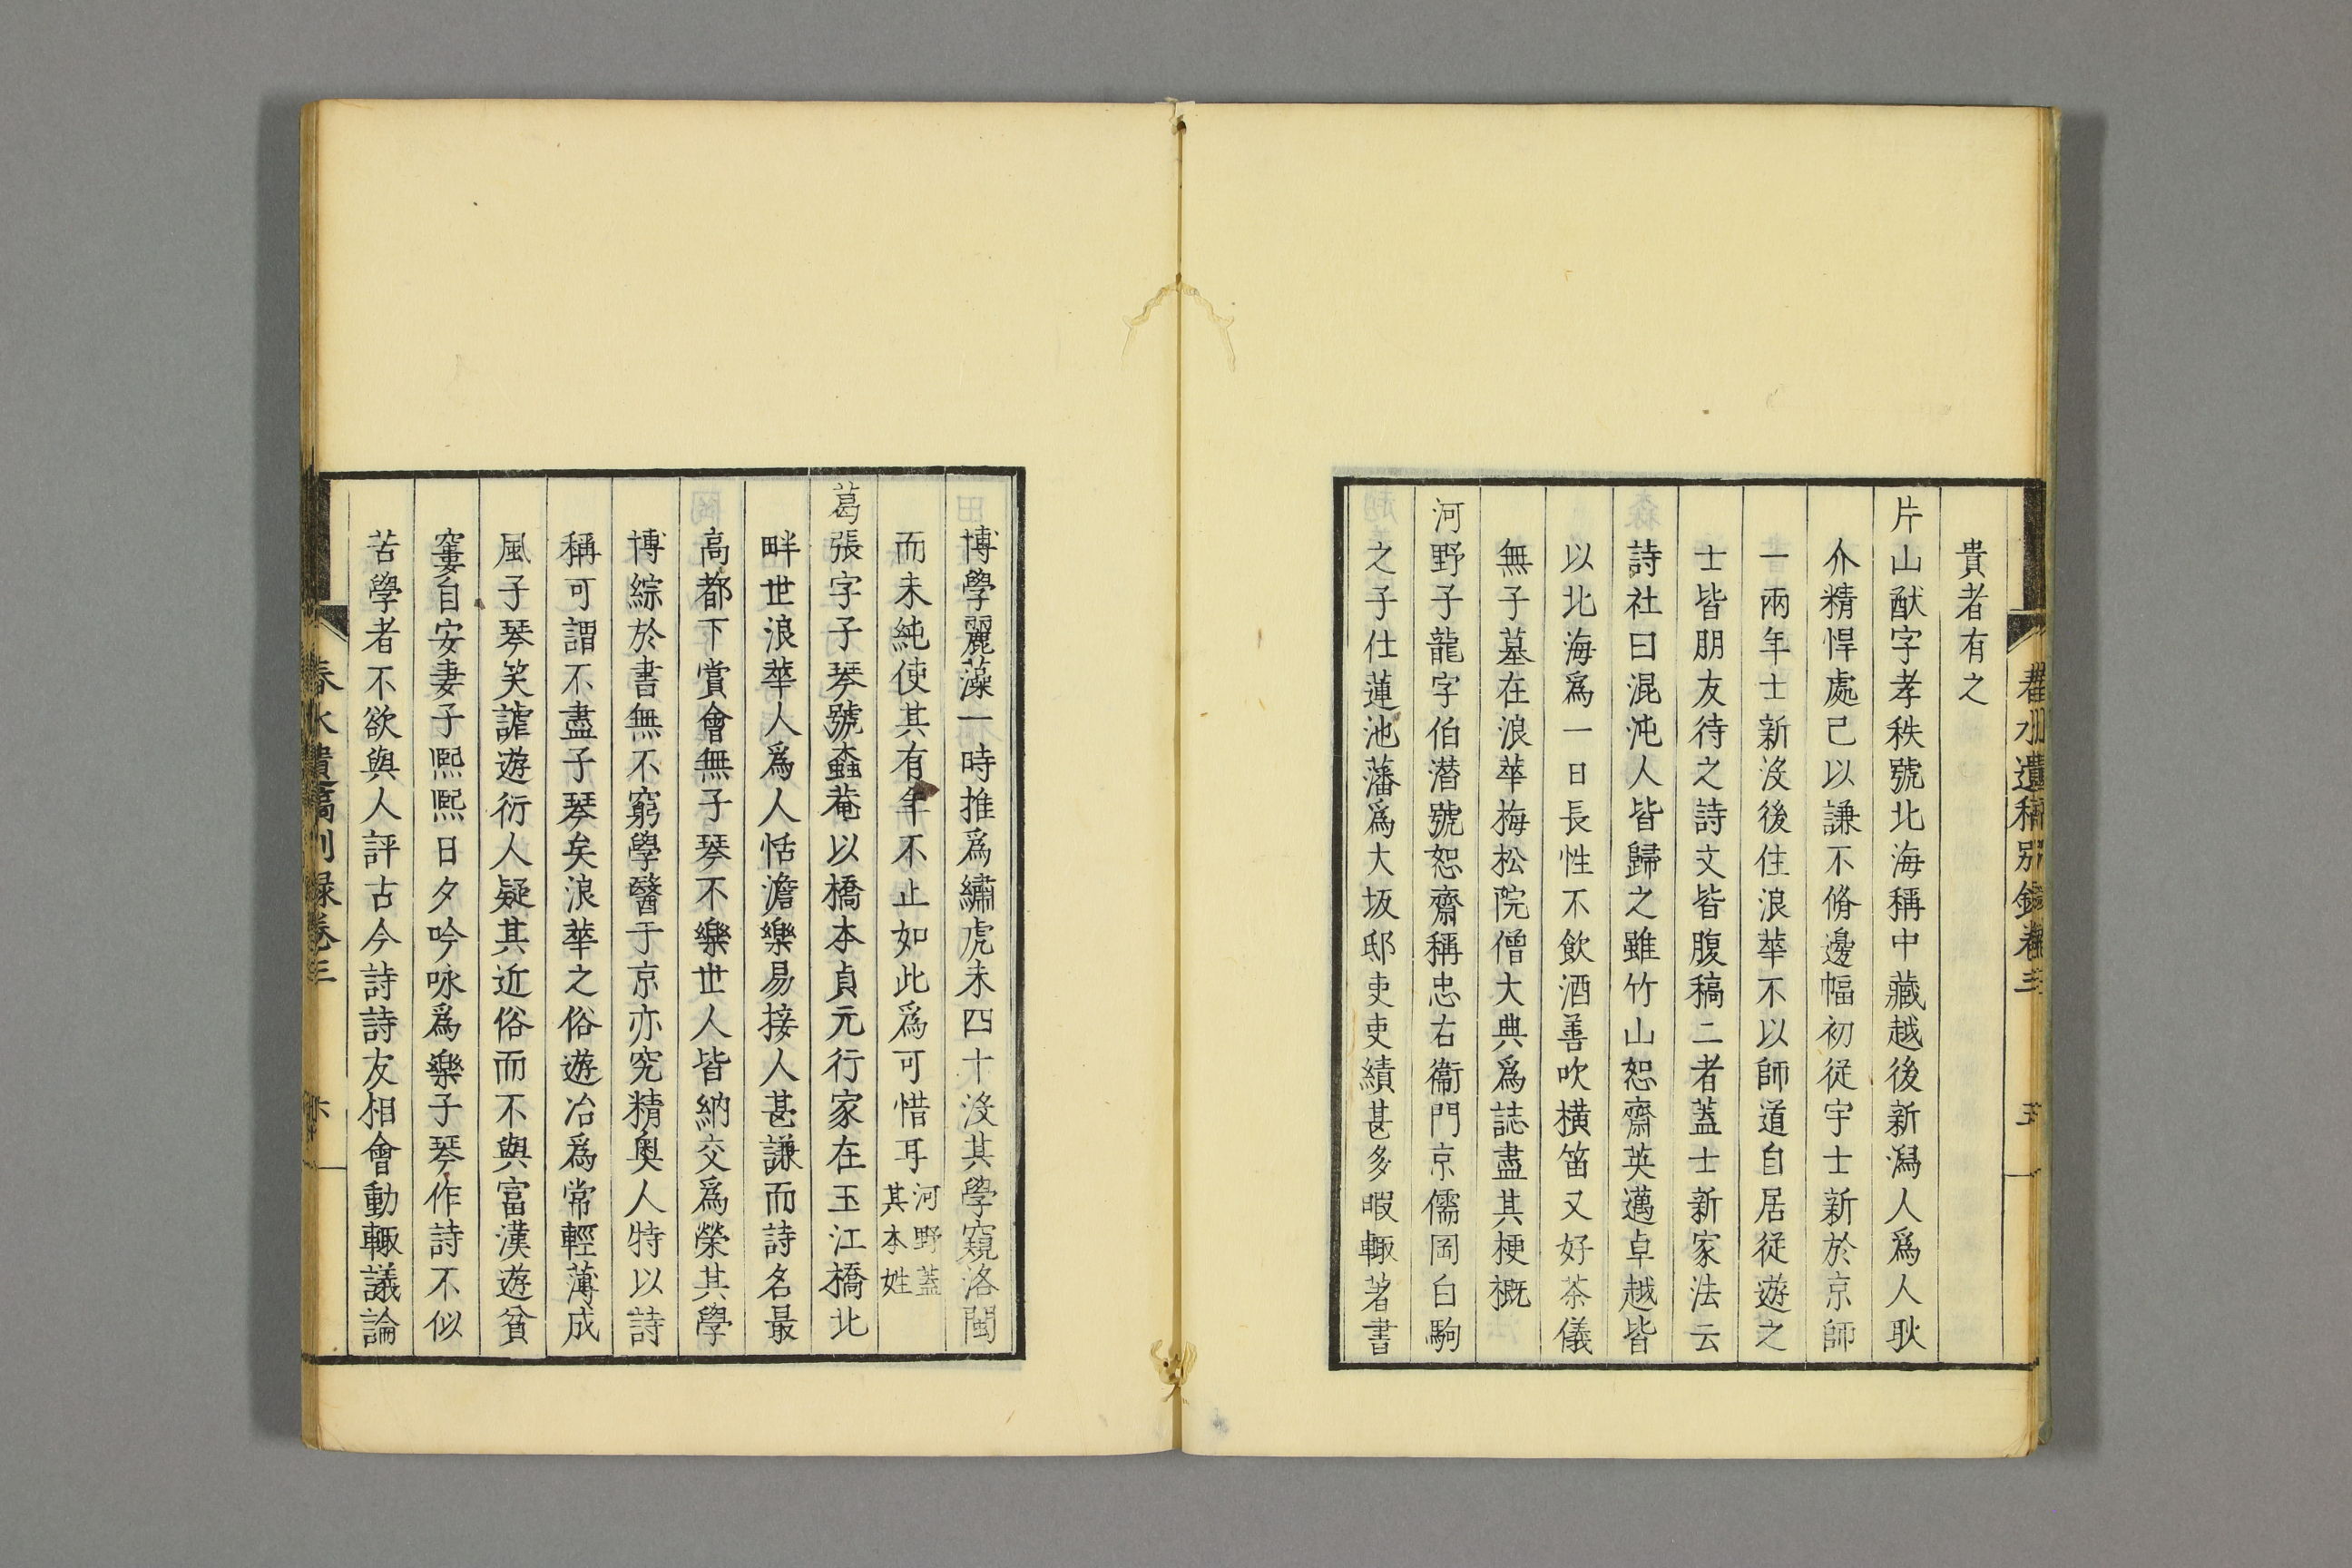 貴者有之
片山猷字孝秩號北海稱中藏越後新潟人爲人耿
介精悍處己以謙不脩邊幅初從宇士新於京師
一兩年士新沒後住浪華不以師道自居從遊之
士皆朋友待之詩文皆腹稿二者蓋士新家法云
詩社曰混沌人皆歸之雖竹山恕齋英邁卓越皆
以北海爲一日長性不飲酒善吹橫笛又好茶儀
無子墓在浪華梅松院僧大典爲誌盡其梗概
河野子龍字伯潛號恕齋稱忠右衞門京儒岡白駒
之子仕蓮池藩爲大坂邸吏吏績甚多暇輙著書
博學麗藻一時推爲繡虎未四十沒其學窺洛閩
而未純使其有年不止如此爲可惜耳河野蓋其本姓
葛張字子琴號螙菴以橋本貞元行家在玉江橋北
畔世浪華人爲人恬澹樂易接人甚謙而詩名最
高都下賞會無子琴不樂世人皆納交爲榮其學
博綜於書無不窮學醫于京亦究精奥人特以詩
稱可謂不盡子琴矣浪華之俗遊冶爲常輕薄成
風子琴笑謔遊衍人疑其近俗而不與富漢遊貧
窶自安妻子熙熙日夕吟咏爲樂子琴作詩不似
苦學者不欲與人評古今詩詩友相會動輙議論
春水遺稿別録卷三